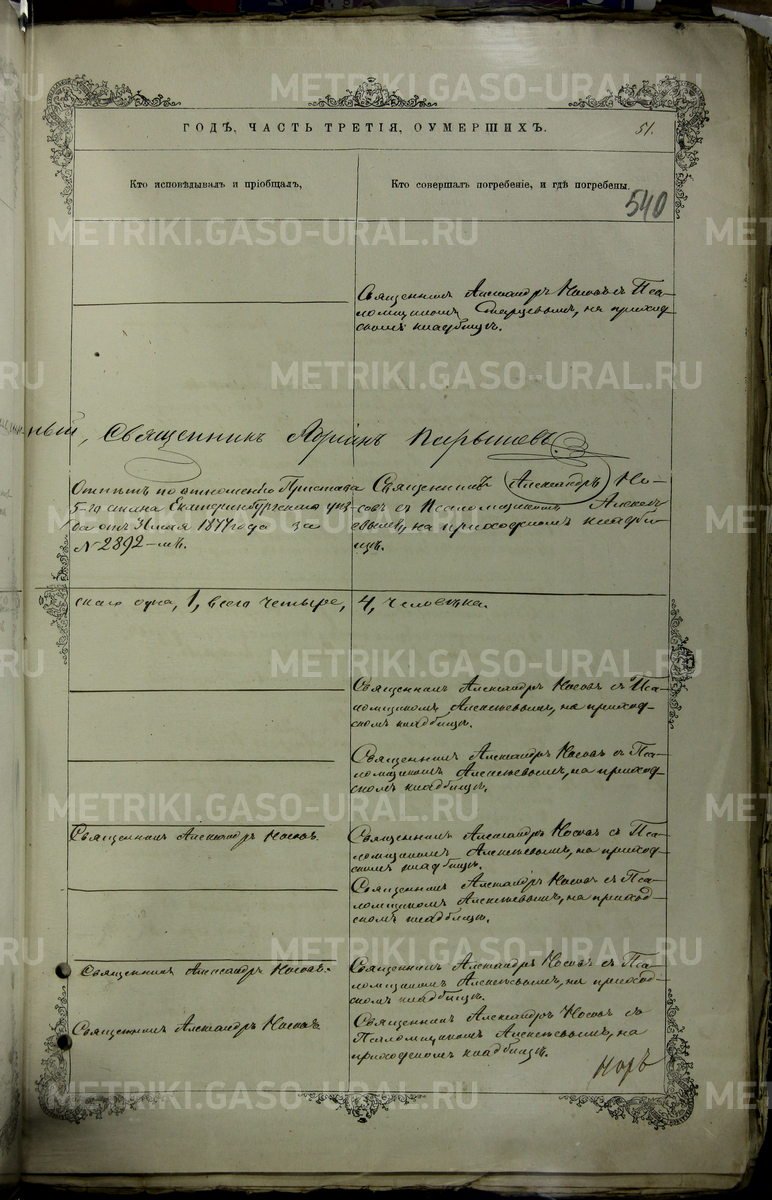 ГОДѢ, ЧАСТЬ ТРЕТІЯ, О УМЕРШИХЪ.
51.
Кто исповѣдывалъ и пріобщалъ,
Кто совершалъ погребеніе, и гдѣ погребены.
540
Священникъ Александръ Носовъ съ Пса-
ломщикомъ на приход-
скомъ кладбищѣ.
Священникъ Адріанъ
Отпѣтъ по отношенію Пристава
5-го стана Екатеринбургскаго уѣз-
да отъ 1877 года за
№ 2892-мъ.
Священникъ Александръ Но-
совъ съ Псаломщикомъ Алексѣ-
евымъ, на приходскомъ кладби-
щѣ.
скаго одна, 1, всего четыре, 4, человѣка.
Священникъ Александръ Носовъ съ Пса-
ломщикомъ Алексѣевымъ, на приход-
скомъ кладбищѣ.
Священникъ Александръ Носовъ съ Пса-
ломщикомъ Алексѣевымъ, на приход-
скомъ кладбищѣ.
Священникъ Александръ Носовъ.
Священникъ Александръ Носовъ съ Пса-
ломщикомъ Алексѣевымъ, на приход-
скомъ кладбищѣ.
Священникъ Александръ Носовъ съ Пса-
ломщикомъ Алексѣевымъ, на приход-
скомъ кладбищѣ.
Священникъ Александръ Носовъ.
Священникъ Александръ Носовъ съ Пса-
ломщикомъ Алексѣевымъ, на приход-
скомъ кладбищѣ.
Священникъ Александръ Носовъ
Священникъ Александръ Носовъ съ
Псаломщикомъ Алексѣевымъ, на
приходскомъ кладбищѣ.
METRIKI.GASO-URAL.RU